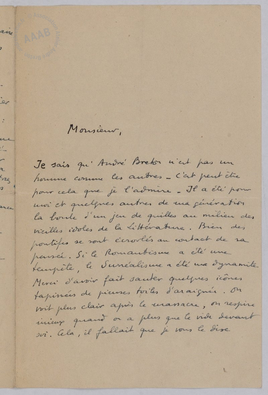 AAAB
Monsieur,
Je sais qu'André Breton n'est pas un
homme comme les autres – C'est peut être
pour cela que je l'admire – Il a été pour
moi et quelques autres de ma génération
la boule d'un jeu de quilles au milieu des
vieilles idoles de la littérature. Bien des
pontifes se sont écroulés au contact de sa
pensée. Si le Romantisme a été une
tempête, le Surréalisme a été une dynamite
Merci d'avoir fait sauter quelques
tapissées de pieuses toiles d'araignée. On
voit plus clair après le massacre, on respire
mieux quand on a plus que le vide devant
soi. Cela, il fallait que je vous le dise